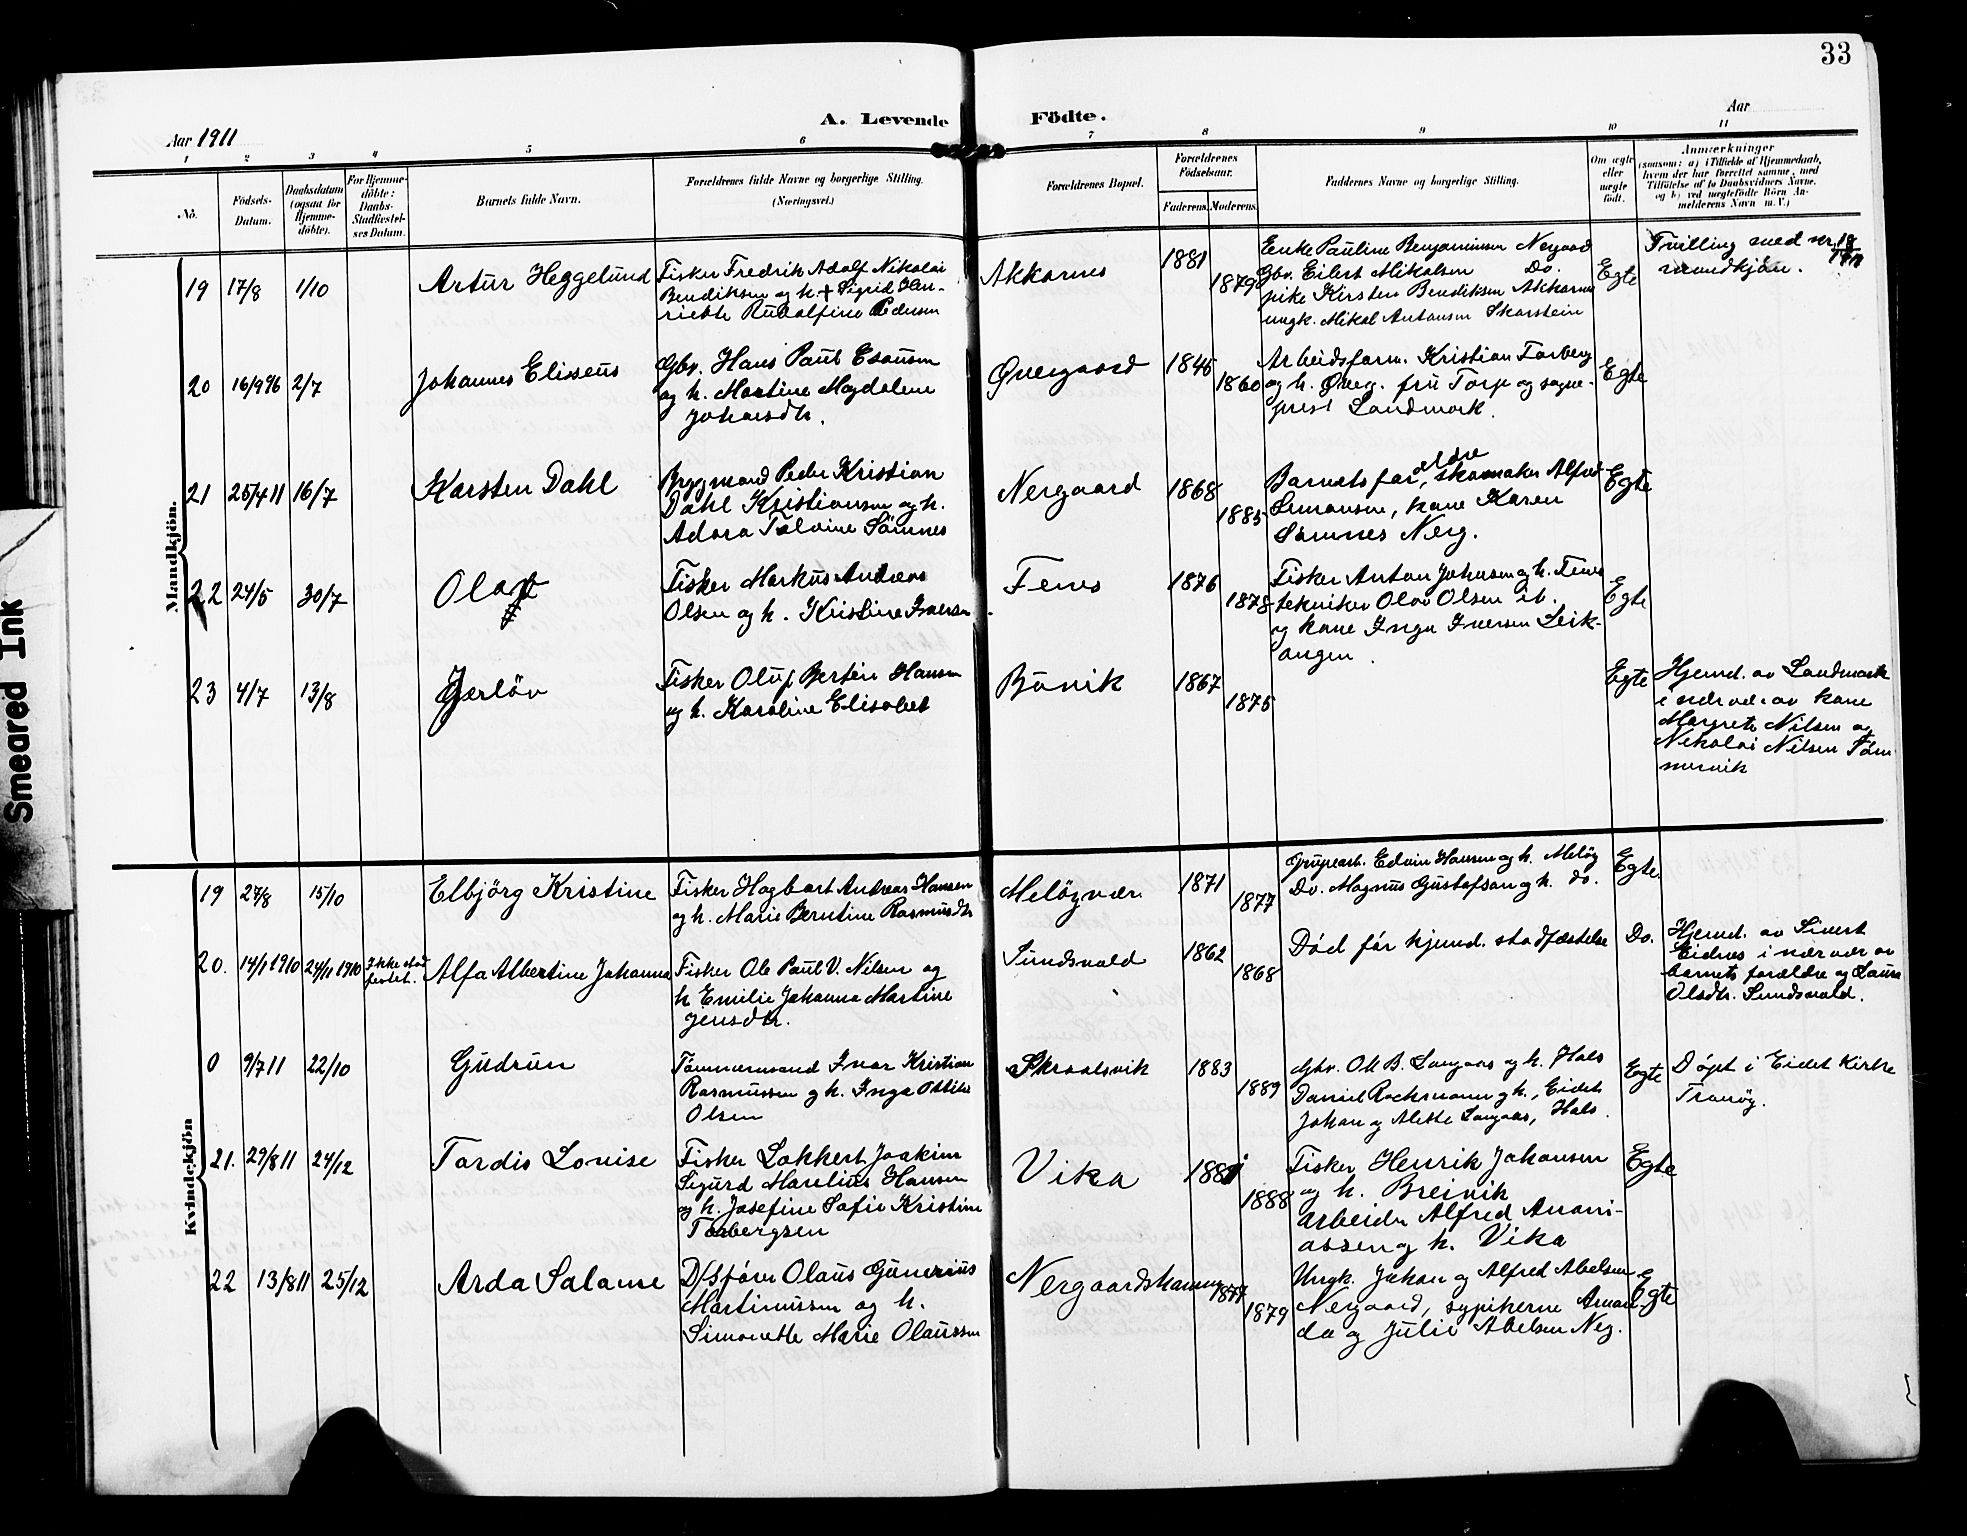 33
A. Levende Födte.
Aar 1911
Aar
1 2 3 4 5 6 7 8 9 10 11
No.
Födsels-Datum.
Daabsdatum (ogsaa for Hjemme-döbte).
For Hjemme-döbte: Daabs-Stadfæstel-ses Datum.
Barnets fulde Navn.
Forældrenes fulde Navne og borgerlige Stilling.
(Næringsvei.)
Forældrenes Bopæl.
Forældrenes Födselsaar.
Faderens. Moderens.
Faddernes Navne og borgerlige Stilling.
Om ægte eller uægte födt.
Anmærkninger
(saasom: a) i Tilfælde af Hjemmedaab, hvem der har forrettet samme, med Tilföielse af to Daabsvidners Navne, og b) ved uægtefödte Börn An-melderens Navn m. V.)
Mandkjön.
19 17/8 1/10 Artur Heggelund
Fisker Fredrik Adolf Nikolai
Bendiksen og h. + Sigrid Hen-
riette Rudolfine Pedersen
Akkarnes 1881 1879
Enke Pauline Benjaminsen Nergaard
Gbr. Eilert Mikalsen Do.
pike Kirsten Bendiksen Akkarnes
ungk. Mikal Antonsen Skarstein
Egte
Tvilling med nr. 18
mandkjön.
20 16/9 96 2/7 Johannes Eliseus
Gbr. Hans Paul Esausen
og h. Martine Magdalene
Johansdtr.
Øvergaard 1845 1860
Arbeidsform. Kristian Torberg
og h. Øverg. fru Torp og sogne-
prest Landmark.
Egte
21 25/4 11 16/7 Karsten Dahl
Brygmand Peder Kristian
Dahl Kristiansen og h.
Adora Talvine Sömnes
Nergaard 1868 1885
Barnets far, ældre skomaker Alfred
Simonsen, kone Karen
Sömnes Nerg.
Egte
22 24/5 30/7 Olaf
Fisker Markus Andreas
Olsen og h. Kristine Iversen
Fenes 1876 1878
Fisker Anton Johnsen og h. Fenes
tekniker Olav Olsen ib.
og kone Inga Iversen Leik-
angen.
Egte
23 4/7 13/8 Gjerlöv
Fisker Oluf Bertin Hansen
og h. Karoline Elisabet
Bövik 1867 1875
Egte
Hjemd. av Landmark
i nærvær av kone
Margrete Nilsen og
Nikolai Nilsen Töm
mervik
Kvindekjön
19 27/8 15/10 Elbjörg Kristine
Fisker Hagbart Andreas Hansen
og h. Marie Berntine Rasmusdtr
Melöyvær 1871 1877
Grubearb. Edvin Hansen og h. Melöy
Do. Magnus Gustafson og h. do.
Egte
20. 14/1 1910 24/11 1910 Ikke stad
festet. Alfa Albertine Johanna
Fisker Ole Paul V. Nilsen og
h Emilie Johanna Martine
Jensdtr.
Sundsvald 1862 1868
Död för hjemd. stadfæstelse
Do.
Hjemd. av Sivert
Eidnes i nærvær av
barnets forældre og Laura
Olsdtr. Sundsvald.
0 9/7 11 22/10 Gudrun
Tömmermand Ivar Kristian
Rasmussen og h. Inga Ottilie
Olsen
Skrolsvik 1883 1889
Gbr. Ole B. Langaas og h. Hals
Daniel Rochmann og h., Eidet
Johan og Alette Langaas, Hals.
Egte
Döpt i Eidet Kirke
Tranöy.
21. 29/8 11 24/12 Tordis Lovise
Fisker Lokkert Joakim
Sigurd Marelius Hansen
og h. Josefine Sofie Kristine
Torbergsen
Vika 1881 1888
Fisker Henrik Johansen
og h. Breivik
arbeider Alfred Anani-
assen og h. Vika
Egte
22 13/8 11 25/12 Arda Salame
D/Sförer Olaus Gunerius
Martinussen og h.
Simonette Marie Olaussen
Nergaardshamn 1877 1879
Ungk. Johan og Alfred Abelsen
Nergaard, sypikerne Aman
da og Julie Abelsen Nerg.
Egte
Smeared Ink